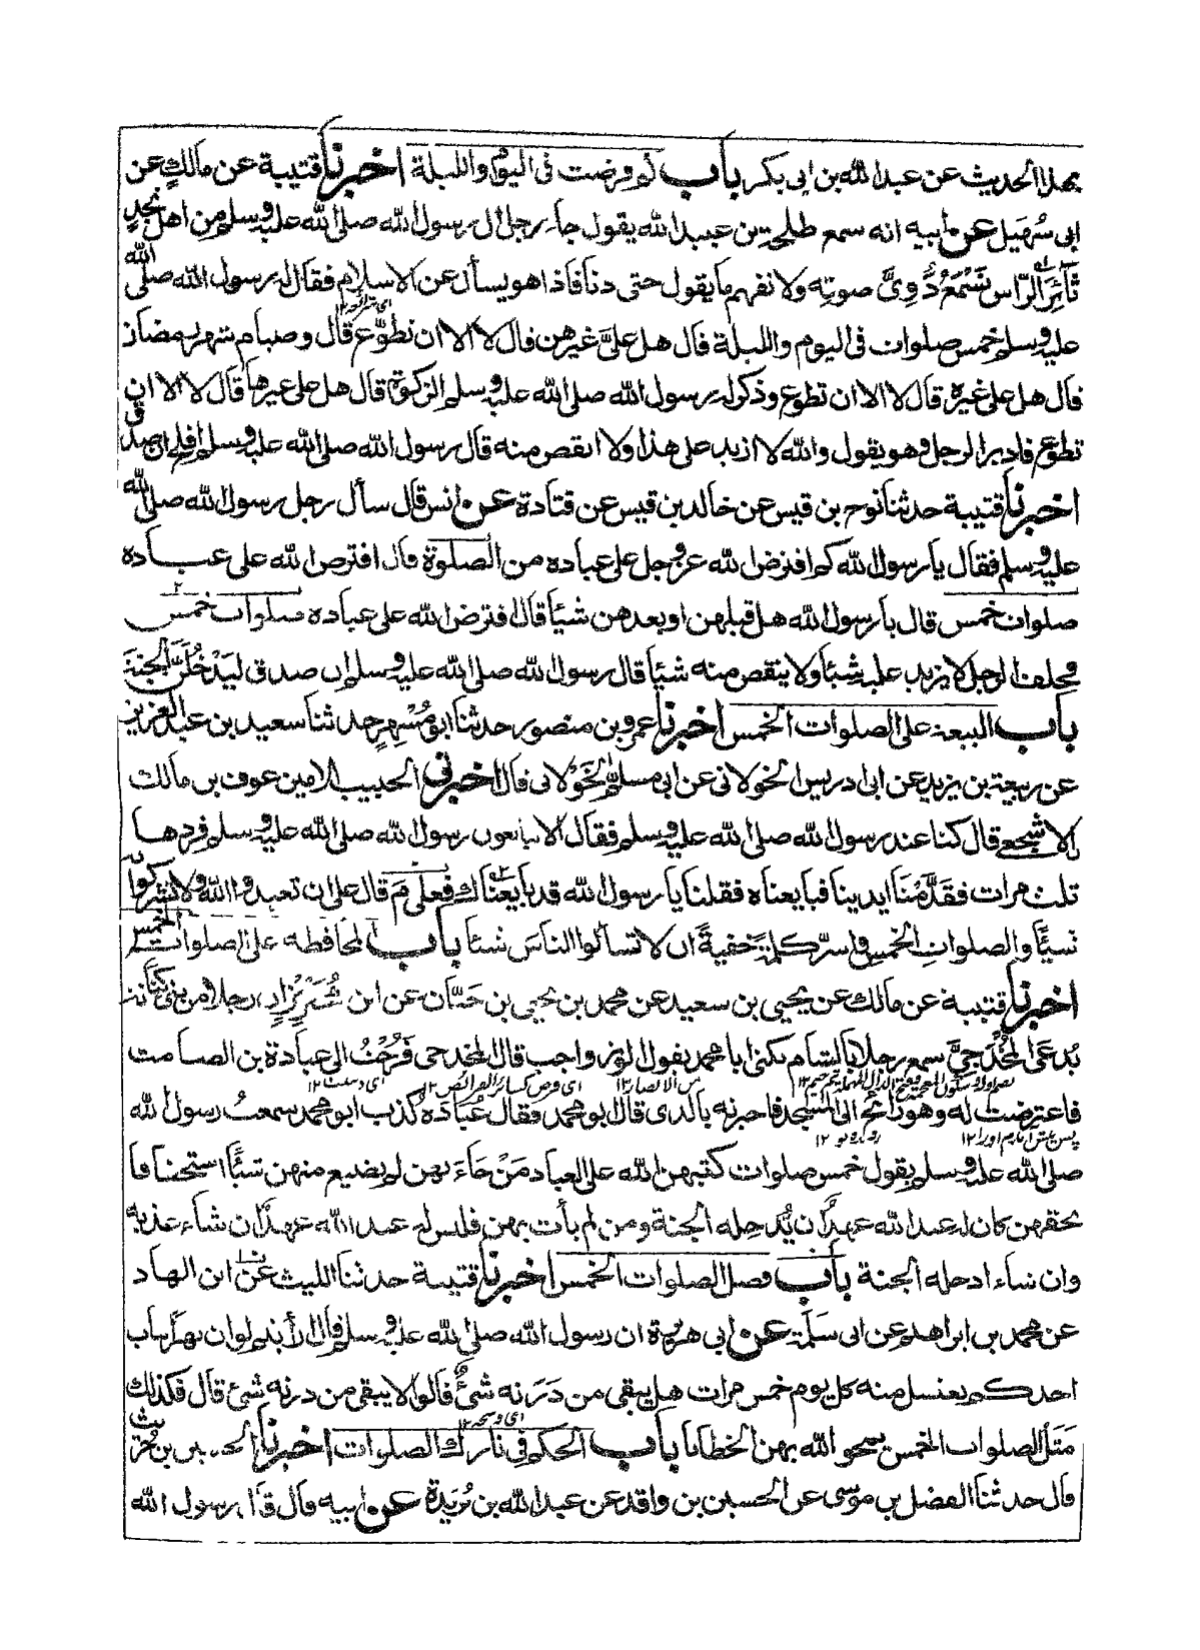 بهذا الحديث عن عبد الله بن ابى بكر باب كم فرضت فى اليوم والليلة اخبرنا قتيبة عن مالك عن
ابى سُهَيل عن ابيه انه سمع طلحة بن عبيد الله يقول جاء رجل الى رسول الله صلى الله عليه وسلم من اهل نجدٍ
ثَآئِرَ الرَّاس نَسْمَعُ دَوِىَّ صوتِه ولا نفهم ما يقول حتى دنا فاذا هو يسأل عن الاسلام فقال له رسول الله صلى الله
عليه وسلم خمس صلوات فى اليوم والليلة قال هل علىَّ غيرهن قال لا الا ان تطوَّع قال وصيام شهر رمضان
قال هل على غيره قال لا الا ان تطوع وذكر له رسول الله صلى الله عليه وسلم الزكوة قال هل على غيرها قال لا الا ان
تطوع فادبر الرجل وهو يقول والله لا ازيد على هذا ولا انقص منه قال رسول الله صلى الله عليه وسلم افلح ان صدق
اخبرنا قتيبة حدثنا نوح بن قيس عن خالد بن قيس عن قتادة عن انس قال سأل رجل رسول الله صلى الله
عليه وسلم فقال يا رسول الله كم افترض الله عز وجل على عباده من الصلوة قال افترض الله على عباده
صلوات خمس قال يا رسول الله هل قبلهن او بعدهن شيأ قال افترض الله على عباده صلوات خمس
فحلف الرجل لا يزيد عليه شيأ ولا ينقص منه شيأ قال رسول الله صلى الله عليه وسلم ان صدق لَيَدْخُلَنَّ الجنة
باب البيعة على الصلوات الخمس اخبرنا عمرو بن منصور حدثنا ابو مُسْهِرٍ حدثنا سعيد بن عبد العزيز
عن ربيعة بن يزيد عن ابى ادريس الخولانى عن ابى مسلم الخَوْلانى قال اخبرنى الحبيب الامين عوف بن مالك
الاشجعى قال كنا عند رسول الله صلى الله عليه وسلم فقال الا تبايعون رسول الله صلى الله عليه وسلم فردها
ثلث مرات فقدَّمْنَا ايدينا فبايعناه فقلنا يا رسول الله قد بايعناك فعلى مَ قال على ان تعبدوا الله ولا تشركوا به
شيًّا والصلواتِ الخمسِ واسرَّ كلمةً خفيةً ان لا تسألوا الناسَ شيئا باب المحافظه على الصلوات الخمس
اخبرنا قتيبة عن مالك عن يحيى بن سعيد عن محمد بن يحيى بن حَبَّان عن ابن مُحَيْرِيْزٍ ان رجلا من بنى كنانة
يُدعَى المُخْدَجِىَّ سمع رجلا بالشام يكنى ابا محمد يقول الوتر واجب قال المخدجى فَرُحْتُ الى عبادة بن الصامت
فاعترضت له وهو رائح الى المسجد فاخبرته بالذى قال ابو محمد فقال عُبَادَةُ كذب ابو محمد سمعتُ رسول الله
صلى الله عليه وسلم يقول خمس صلوات كتبهن الله على العباد مَنْ جَاءَ بهن لم يضيع منهن شيًّا استخفافا
بحقهن كان له عند الله عهدٌ ان يُّدخله الجنة ومن لم يأت بهن فليس له عند الله عهدٌ ان شاء عذبه
وان شاء ادخله الجنة باب فضل الصلوات الخمس اخبرنا قتيبة حدثنا الليث عن ابن الهاد
عن محمد بن ابراهيم عن ابى سَلَمَة عن ابى هريرة ان رسول الله صلى الله عليه وسلم قال ارأيتم لو ان نهرًا بباب
احدكم يغتسل منه كل يوم خمس مرات هل يبقى من دَرَنه شئٌ قالوا لا يبقى من درنه شئ قال فكذلك
مَثَلُ الصلوات الخمس يمحو الله بهن الخطايا باب الحكم فى تارك الصلوات اخبرنا الحسين بن حُرَيث
قال حدثنا الفضل بن موسى عن الحسين بن واقد عن عبد الله بن بُرَيدَة عن ابيه قال قال رسول الله